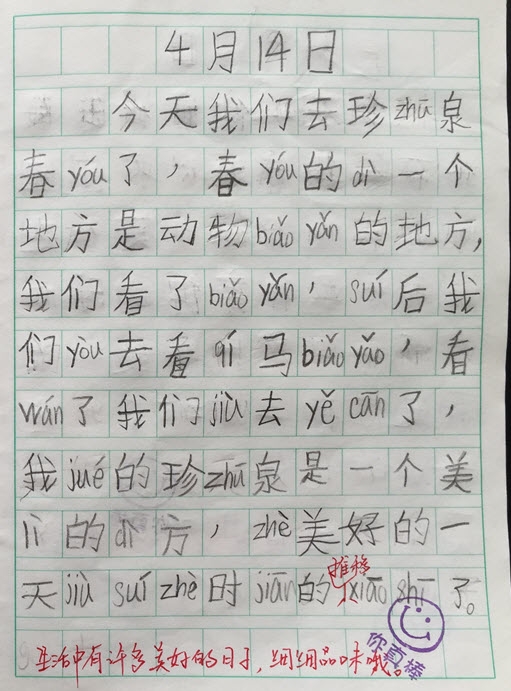 4月14日
今天我们去珍zhū泉
春yóu了，春yóu的dì一个
地方是动物biǎo yǎn的地方，
我们看了biǎo yǎn，suí后我
们yòu去看qí马biǎo yǎo，看
wán了我们jiù去yě cān了，
我jué的珍zhū泉是一个美
lì的dì方，zhè美好的一
天jiù suí zhè时jiān的推移xiāo shī了。
生活中有许多美好的日子，细细品味哦。
你真棒